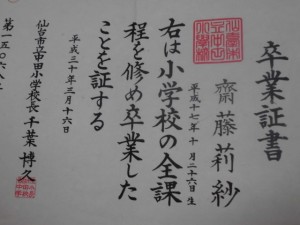 卒業証書
齋藤莉紗
平成十七年十月二十六日生
右は小学校の全課
程を修め卒業した
ことを証する
平成三十年三月十六日
仙台市立中田小学校長 千葉博久